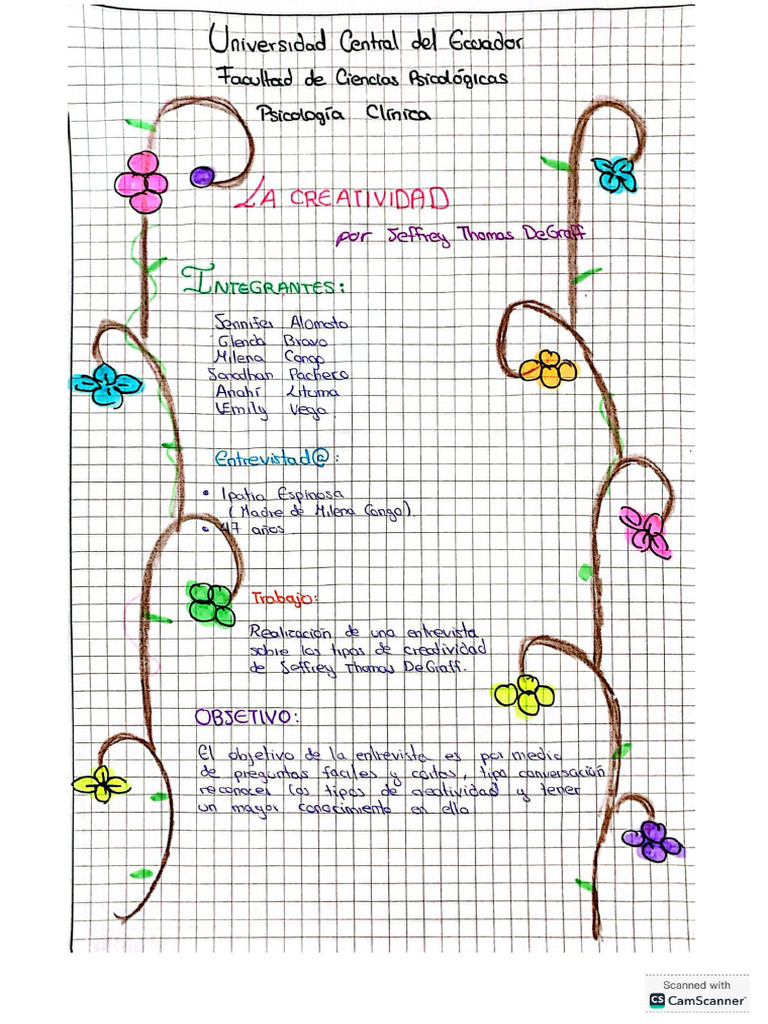 Universidad Central del Ecuador
Facultad de Ciencias Psicológicas
Psicología Clínica
LA CREATIVIDAD
por Jeffrey Thomas DeGraff
INTEGRANTES:
Jennifer Alomoto
Glenda Bravo
Milena Congo
Jonathan Pacheco
Anahí Lituma
Emily Vega
Entrevistad@:
• Ipatia Espinosa
(Madre de Milena Congo).
• 47 años
Trabajo:
Realización de una entrevista
sobre los tipos de creatividad
de Jeffrey Thomas DeGraff.
OBJETIVO:
El objetivo de la entrevista es por medio
de preguntas fáciles y cortas, tipo conversación
reconocer los tipos de creatividad y tener
un mayor conocimiento en ello
Scanned with
CS CamScanner